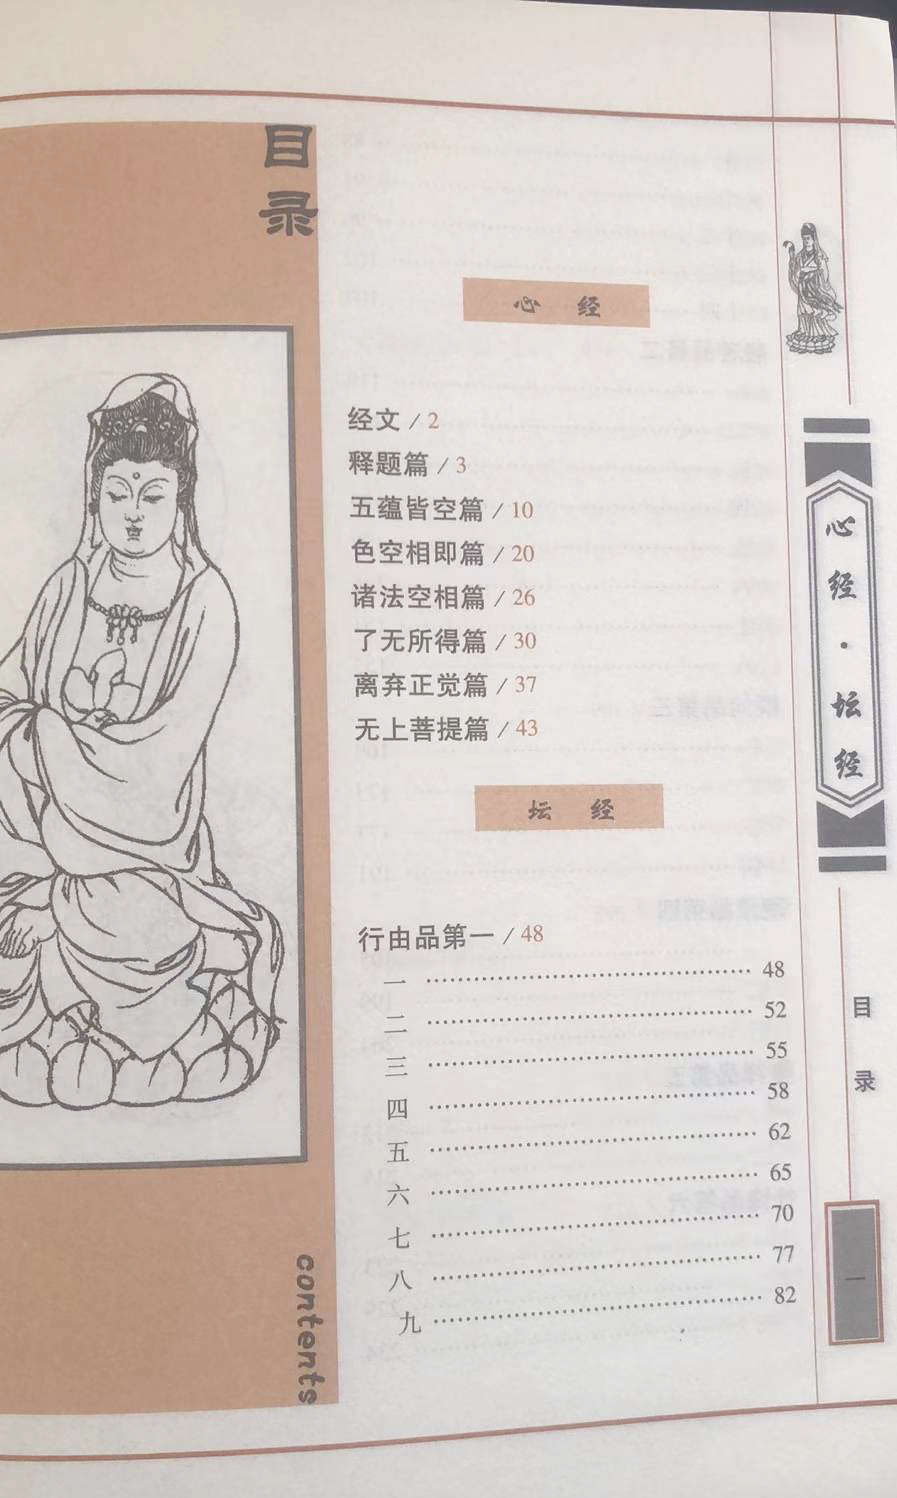 目录
心 经
经文 / 2
释题篇 / 3
五蕴皆空篇 / 10
色空相即篇 / 20
诸法空相篇 / 26
了无所得篇 / 30
离弃正觉篇 / 37
无上菩提篇 / 43
坛 经
行由品第一 / 48
一 ………………………………………… 48
二 ………………………………………… 52
三 ………………………………………… 55
四 ………………………………………… 58
五 ………………………………………… 62
六 ………………………………………… 65
七 ………………………………………… 70
八 ………………………………………… 77
九 ………………………………………… 82
contents
心经·坛经
目录
一